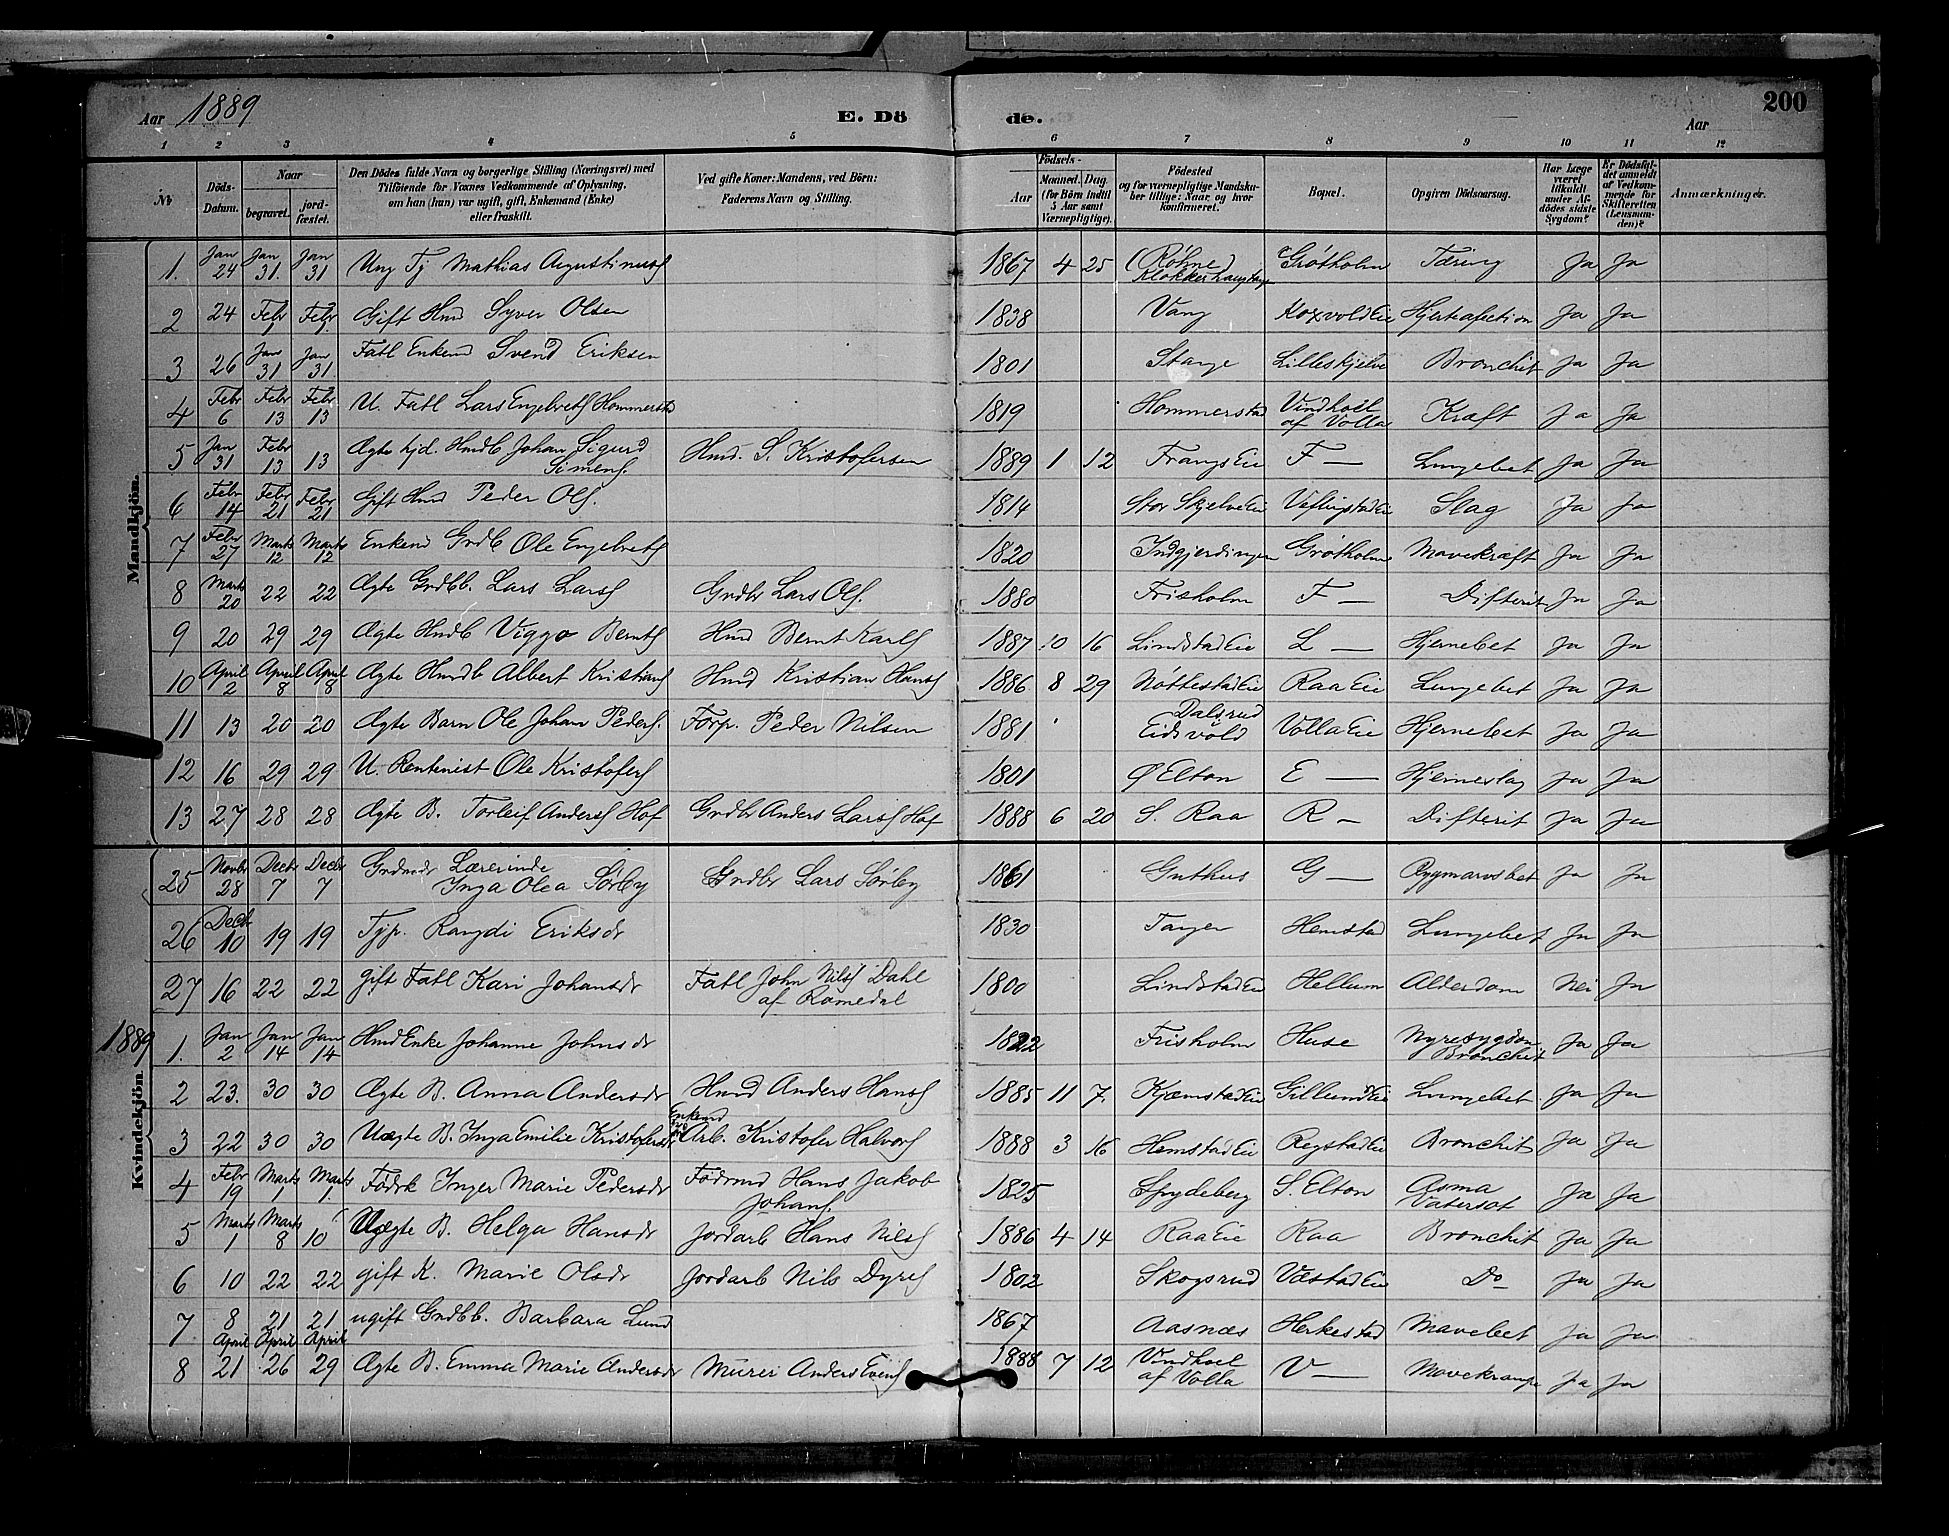 Aar 1889 E. Dö de. Aar 200
1 2 3 4 5 6 7 8 9 10 11 12
No
Döds-
Datum.
Naar
begravet.
jord-
fæstet.
Den Dödes fulde Navn og borgerlige Stilling (Næringsvei) med
Tilföiende for Voxnes Vedkommende af Oplysning,
om han (hun) var ugift, gift, Enkemand (Enke)
eller fraskilt.
Ved gifte Koner: Mandens, ved Börn:
Faderens Navn og Stilling.
Födsels-
Aar
Maaned. Dag
(for Börn indtil
5 Aar samt
Værnepligtige).
Födested
og for værnepligtige Mandsku-
ber tillige: Naar og hvor
konfirmeret.
Bopæl.
Opgiven Dödsaarsag.
Har Læge
været
tilkaldt
under Af-
dödes sidste
Sygdom?
Er Dödsfal-
det anmeldt
af Vedkom-
mende for
Skifteretten
(Lensman-
den)?
Anmærkninger.
Mandkjön.
1. Jan 24 Jan 31. Jan 31 Ung Tj Mathias Augustinusf 1867 4 25 (Röhne) Grötholm Tæring Ja Ja
2 24 Febr 1 Febr 1 Gift Hmd Syver Olsen 1838 Vang Koxvold Eie Hjerteafection Ja Ja
3 26 Jan 31 Jan 31. Fatl Enkemd Svend Eriksen 1801 Stange Lilleskjelve Bronchit Ja Ja
4 Febr 6 Febr 13 Febr 13 U. Fatl Lars Engebretf Hommerstad 1819 Hommerstad Vindhoel af Volla Kræft Ja Ja
5 Jan 31 Febr 13 13 Ægte hjd. Hmdb Johan Sigurd Simensf. Hmd. S. Kristofersen 1889 1 12 Frangs Eie F — Lungebet Ja Ja
6 Febr 14 Febr 21 Febr 21 Gift Hmd Peder Olf. 1814 Stor Skjelve Eie Veflingstad Eie Slag Ja Ja
7 Febr 27 Marts 12 Marts 12 Enkemd Grdb Ole Engebretf 1820 Indgjerdingen Grötholm Mavekræft Ja Ja
8 Marts 20 22 22 Ægte Grdbb. Lars Larsf Grdbr Lars Olf. 1880 Frisholm F — Difterit Ja Ja
9 20 29 29 Ægte Hmdb Viggo Berntf Hmd Bernt Karlf 1887 10 16 Lindstad Eie L — Hjernebet Ja Ja
10 April 2 April 8 April 8 Ægte Hmdb Albert Kristianf Hmd Kristian Hansf 1886 8 29 Nöttestad Eie Raa Eie Lungebet Ja Ja
11 13 20 20 Ægte Barn Ole Johan Pedersf. Forp. Peder Nilsen 1881 Dalsrud Eidsvold Volla Eie Hjernebet Ja Ja
12 16 29 29 U. Rentenist Ole Kristoferf 1801 Ø Elton E — Hjerneslag Ja Ja
13 27 28 28 Ægte B. Torleif Andersf Hof Grdbr Anders Larsf Hof 1888 6 20 S. Raa R — Difterit Ja Ja
25 Novbr 28 Decbr 7 Decbr 7 Grdmdr Lærerinde Inga Olea Sörby Grdbr Lars Sörby 1861 Guthus G — Rygmarvsbet Ja Ja
26 Decbr 10 19 19 Tjp. Rangdi Eriksdr 1830 Tangen Hemstad Lungebet Ja Ja
27 16 22 22 gift Fatl Kari Johansdr Fatl John Nilsf Dahl af Romedal 1800 Lindstad Eie Hellum Alderdom Nei Ja
1889
Kvindekjön
1. Jan 2 Jan 14 Jan 14 Hmd Enke Johanne Johnsdr 1822 Frisholm Huse Nyresygdom Bronchit Ja Ja
2 23. 30 30 Ægte B. Anna Andersdr Hmd Anders Hansf 1885 11 7. Kjæmstad Eie Gillund Eie Lungebet Ja Ja
3 22 30 30 Uægte B. Inga Emilie Kristofersdr Enkemd Arb. Kristofer Halvorsf 1888 3 16 Hemstad Eie Regstad Eie Bronchit Ja Ja
4 Febr 19 Marts 1 Marts 1 Födrk Inger Marie Pedersdr Födrmd Hans Jakob Johansf. 1825 Spydeberg S. Elton Asma Vatersot Ja Ja
5 Marts 1 Marts 8 10 Uægte B. Helga Hansdr Jordarb Hans Nilsf 1886 4 14 Raa Eie Raa Bronchit Ja Ja
6 10 22 22 gift K. Marie Olsdr Jordarb Nils Dyref 1802 Skogsrud Væstad Eie Do Ja Ja
7. 8 21 21 ugift Grdbb. Barbara Lund 1867 Aasnæs Herkestad Mavebet Ja Ja
8 April 21 April 26 April 29 Ægte B. Emma Marie Andersdr Murer Anders Evensf 1888 7 12 Vindhoel af Volla V — Mavekrampe Ja Ja